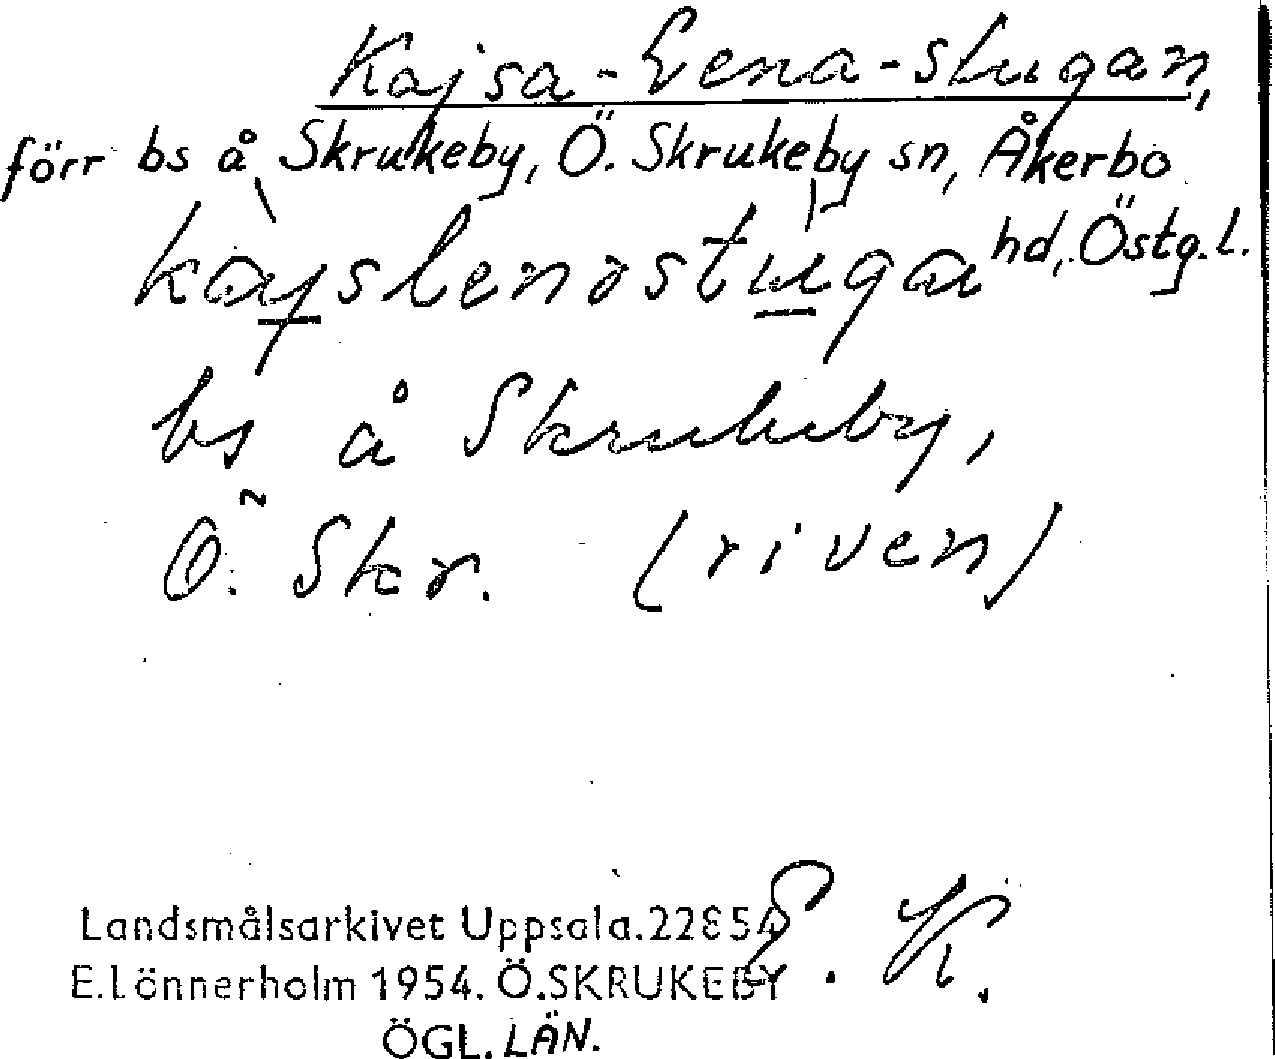 Kajsa-Lena-stugan,
förr bs å Skrukeby, Ö. Skrukeby sn, Åkerbo
hd, Östg.l.
kàyslenastùga
bs å Skrukeby,
Ö. Skr. (riven)
Landsmålsarkivet Uppsala.22854
E. K.
E.Lönnerholm 1954. Ö.SKRUKEBY
ÖGL. LÄN.